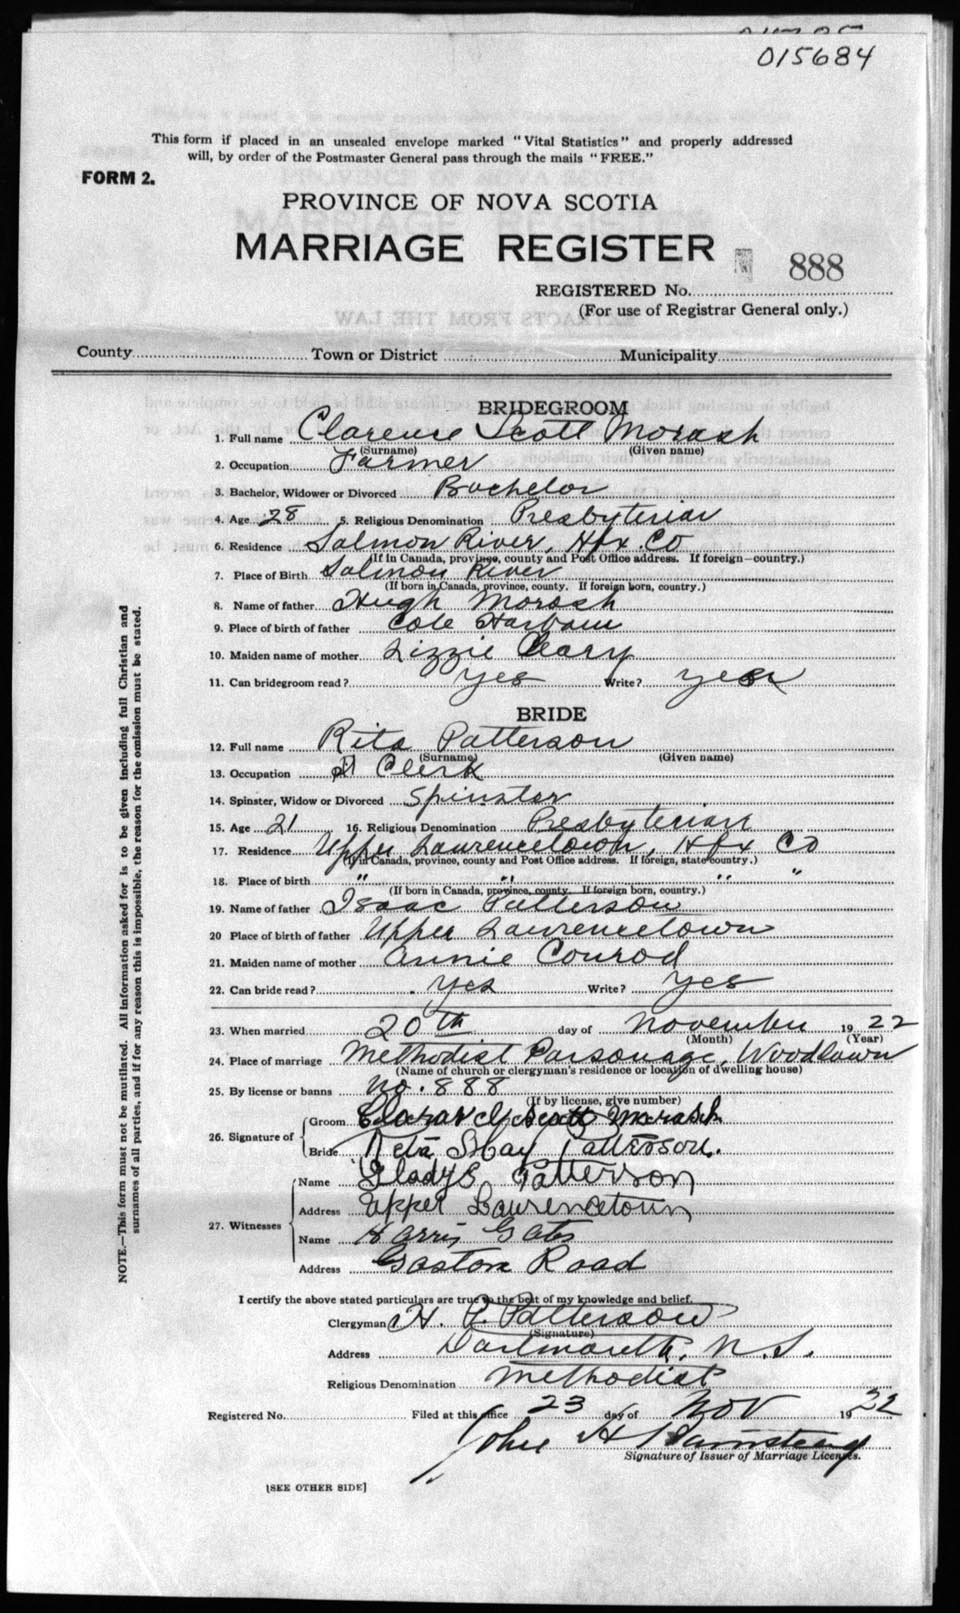 015684
This form if placed in an unsealed envelope marked "Vital Statistics" and properly addressed
will, by order of the Postmaster General pass through the mails "FREE."
FORM 2.
PROVINCE OF NOVA SCOTIA
MARRIAGE REGISTER
888
REGISTERED No.
(For use of Registrar General only.)
County Town or District Municipality
BRIDEGROOM
1. Full name Clarence Scott Morash
(Surname) (Given name)
2. Occupation Farmer
3. Bachelor, Widower or Divorced Bachelor
4. Age 28 5. Religious Denomination Presbyterian
6. Residence Salmon River, Hfx. Co
(If in Canada, province, county and Post Office address. If foreign—country.)
7. Place of Birth Salmon River
(If born in Canada, province, county. If foreign born, country.)
8. Name of father Hugh Morash
9. Place of birth of father Cole Harbour
10. Maiden name of mother Lizzie Cleary
11. Can bridegroom read? Yes Write? yes
BRIDE
12. Full name Rita Patterson
(Surname) (Given name)
13. Occupation Clerk
14. Spinster, Widow or Divorced Spinster
15. Age 21 16. Religious Denomination Presbyterian
17. Residence Upper Lawrencetown, Hfx Co
(If in Canada, province, county and Post Office address. If foreign, state country.)
18. Place of birth " " " "
(If born in Canada, province, county. If foreign born, country.)
19. Name of father Isaac Patterson
20 Place of birth of father Upper Lawrencetown
21. Maiden name of mother Annie Conrod
22. Can bride read? Yes Write? Yes
23. When married 20th day of November 1922
(Month) (Year)
24. Place of marriage Methodist Parsonage, Woodlawn
(Name of church or clergyman's residence or location of dwelling house)
25. By license or banns No. 888
(If by license, give number)
26. Signature of Groom Clarence Scott Morash
Bride Reta May Patterson.
27. Witnesses
Name Gladys Patterson
Address Upper Lawrencetown
Name Harris Gates
Address Gaston Road
I certify the above stated particulars are true to the best of my knowledge and belief.
Clergyman H. P. Patterson
(Signature)
Address Dartmouth, N.S.
Religious Denomination Methodist
Registered No. Filed at this office 23 day of Nov 1922
John H
Signature of Issuer of Marriage Licenses.
[SEE OTHER SIDE]
NOTE.—This form must not be mutilated. All information asked for is to be given including full Christian and
surnames of all parties, and if for any reason this is impossible, the reason for the omission must be stated.